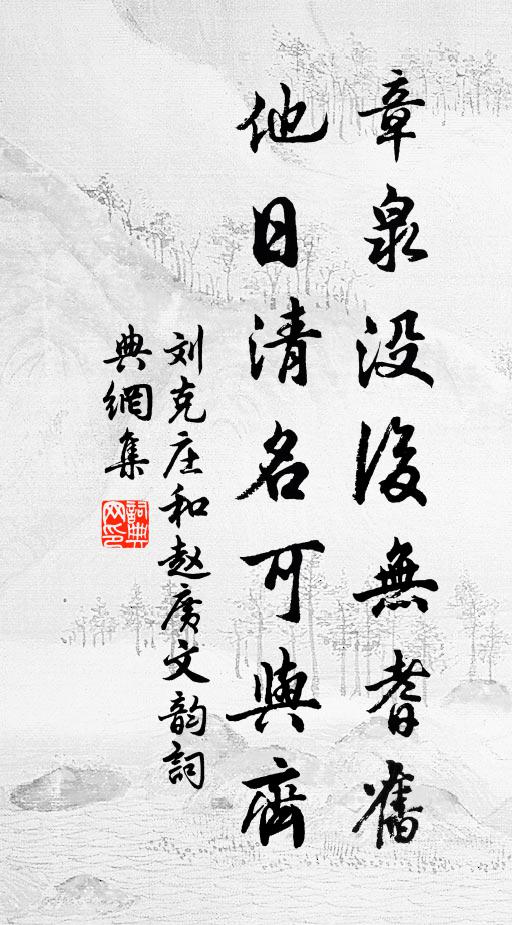 章泉没後無耆舊
他日清名可與齊
刘克庄和赵广文韵詞
典網集
詞典网印